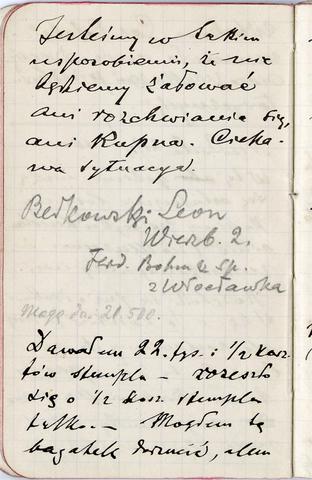 Jesteśmy w takim
usposobieniu, że nie
będziemy żałować
ani rozchwiania się,
ani Kupna. Cieka-
wa sytuacya.
Bełkowski Leon
Wierzb. 2.
Ferd. Bohm & Sp.
z Włocławka
Mogę dać 21.500.
Dawałem 22 tys. i 1/2 kosz-
tów stempla – rozeszło
się o 1/2 kosz. stempla
tylko. – Mogłem tę
bagatelę dorzucić, alem